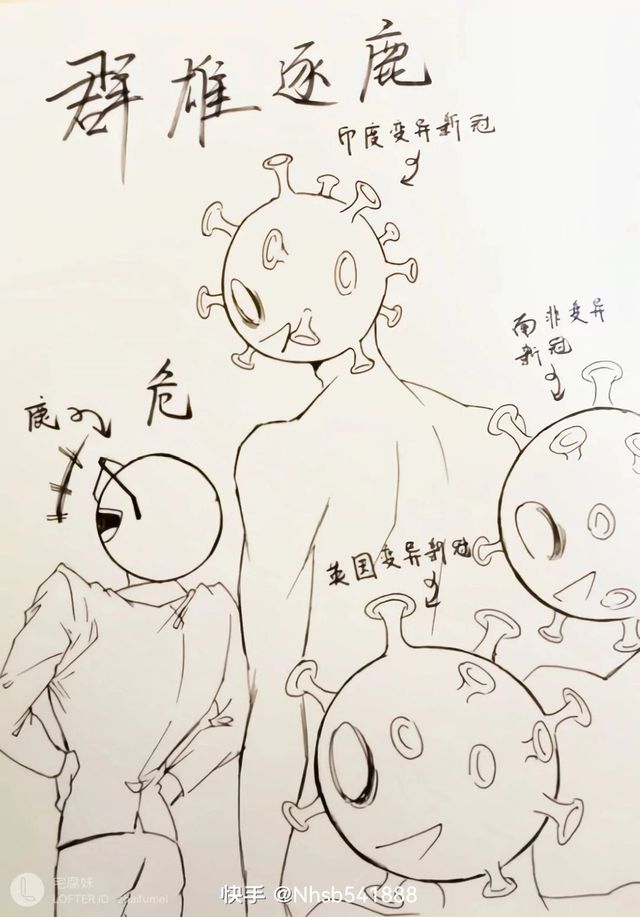 群雄逐鹿
印度变异新冠
南非变异
新冠
危
英国变异新冠
宅腐妹
LOFTER ID: zhaifumei
快手 @Nhsb541888